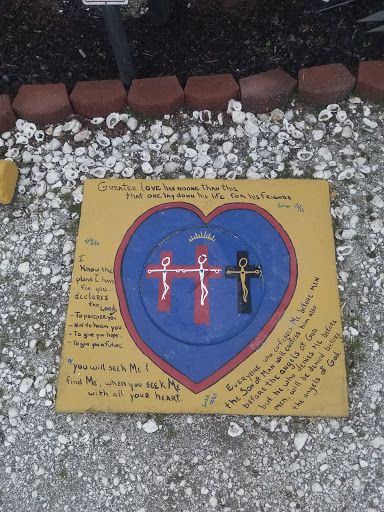 Greater love has no one than this
that one lay down his life for his friends
John 15/13
I
Know the
plans I have
for you
declares
the Lord
- To prosper you
- Not to harm you
- To give you hope
- To give you future
"you will seek Me &
find Me, when you seek Me
with all your heart.
Everyone who confesses Me before men
the Son of Man will confess him also
before the angels of God
but he who denies Me before
men, will be denied before
the angels of God.
Luke